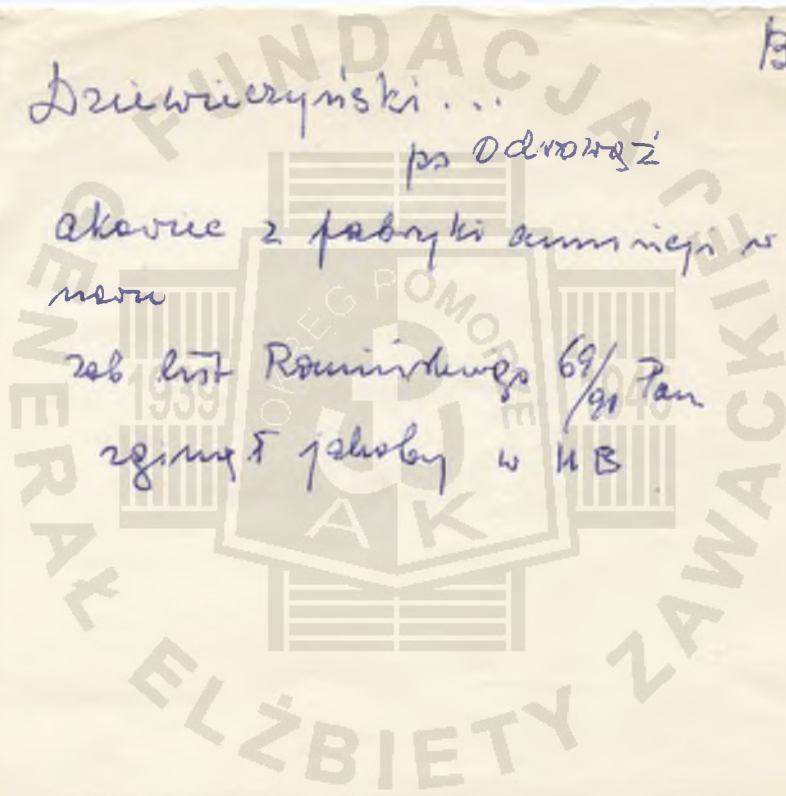 B
Dziewiczyński...
ps Odrowąż
akowiec z fabryki amunicji w
zob list 69/91 Pam
zginął jakoby w UB
FUNDACJA GENERAŁ ELŻBIETY ZAWACKIEJ
OKRĘG POMORZE
1939 1945
AK